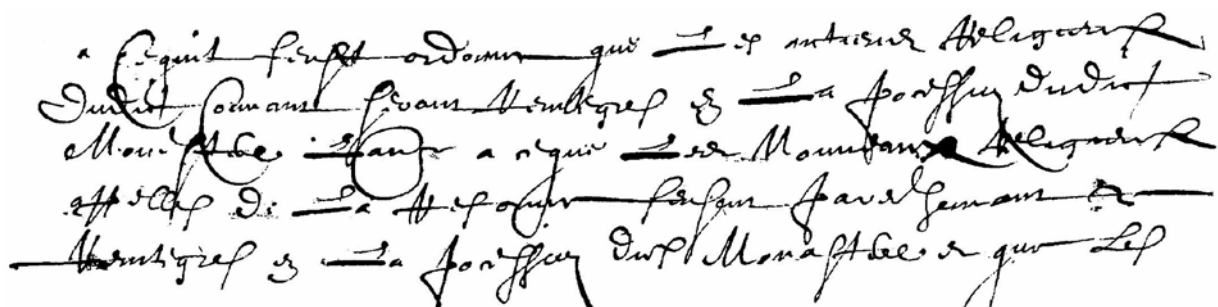 a ce quil feust ordonne que les antiens Religieux
dudict couvant seroient reintegres en la possession dudict
Monastere a ce que les Nouveaux Religieux
appelles de la Reforme feussent pareilhemant
reintegres en la possession dud Monastere et que les